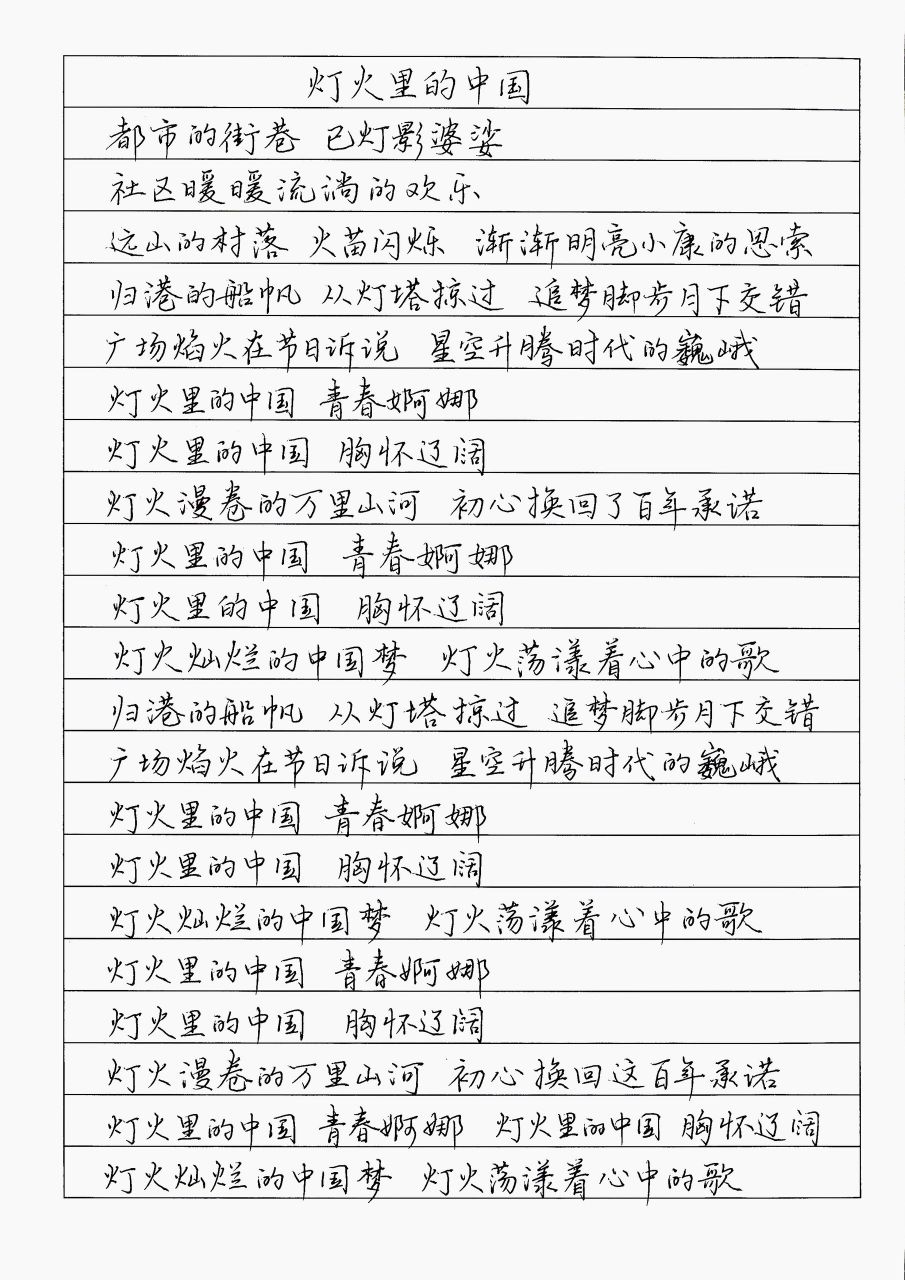 灯火里的中国
都市的街巷 已灯影婆娑
社区暖暖流淌的欢乐
远山的村落 火苗闪烁 渐渐明亮小康的思索
归港的船帆 从灯塔掠过 追梦脚步月下交错
广场焰火在节日诉说 星空升腾时代的巍峨
灯火里的中国 青春婀娜
灯火里的中国 胸怀辽阔
灯火漫卷的万里山河 初心换回了百年承诺
灯火里的中国 青春婀娜
灯火里的中国 胸怀辽阔
灯火灿烂的中国梦 灯火荡漾着心中的歌
归港的船帆 从灯塔掠过 追梦脚步月下交错
广场焰火在节日诉说 星空升腾时代的巍峨
灯火里的中国 青春婀娜
灯火里的中国 胸怀辽阔
灯火灿烂的中国梦 灯火荡漾着心中的歌
灯火里的中国 青春婀娜
灯火里的中国 胸怀辽阔
灯火漫卷的万里山河 初心换回这百年承诺
灯火里的中国 青春婀娜 灯火里的中国 胸怀辽阔
灯火灿烂的中国梦 灯火荡漾着心中的歌